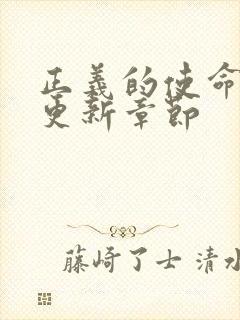 正義的使命
更新章節
藤崎了士 清水